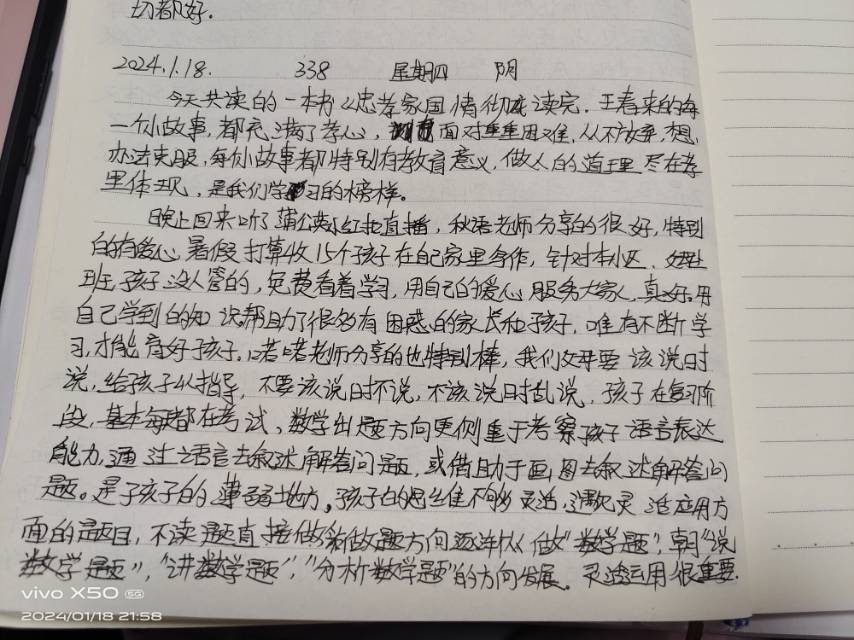 切都好.
2024.1.18. 338 星期四 阴
今天共读的一本书《忠孝家国情彻底读完. 王春来的每
一个小故事, 都充满了孝心, 面对重重困难, 从不放弃, 想
办法克服, 每个小故事都特别有教育意义, 做人的道理尽在孝
里体现, 是我们学习的榜样。
晚上回来听了蒲公英小红花直播, 秋语老师分享的很好, 特别
的有爱心, 暑假打算收15个孩子在自己家里写作, 针对本小区、
班孩子没人管的, 免费看着学习, 用自己的爱心服务大家, 真好. 用
自己学到的知识帮助了很多有困惑的家长和孩子, 唯有不断学
习, 才能育好孩子, 喏喏老师分享的也特别棒, 我们父母要该说时
说, 给孩子以指导, 不要该说时不说, 不该说时乱说, 孩子在复习阶
段, 基本每都在考试、数学出题方向更侧重于考察孩子语言表达
能力, 通过语言去叙述解答问题, 或借助于画图去叙述解答问
题。是子孩子的薄弱地方, 孩子的思维不够灵活, 遇见灵活应用方
面的题目, 不读题直接做 做题方向逐渐从做“数学题”, 朝“说
数学题”, “讲数学题”, “分析数学题”的方向发展. 灵活运用很重要.
vivo X50 5G
2024/01/18 21:58